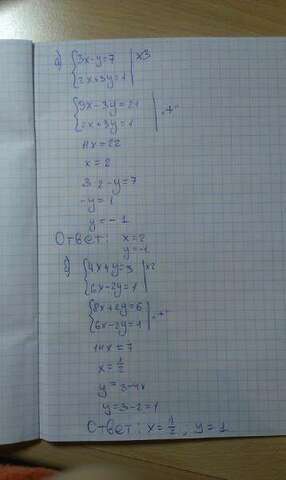 а) {3x-y=7 | x3
{2x+3y=1
{9x-3y=21 | "+"
{2x+3y=1
11x=22
x=2
3·2-y=7
-y=1
y=-1
Ответ: x=2
y=-1
б) {4x+y=3 | x2
{6x-2y=1
{8x+2y=6 | "+"
{6x-2y=1
14x=7
x=1/2
y=3-4x
y=3-2=1
Ответ: x=1/2, y=1